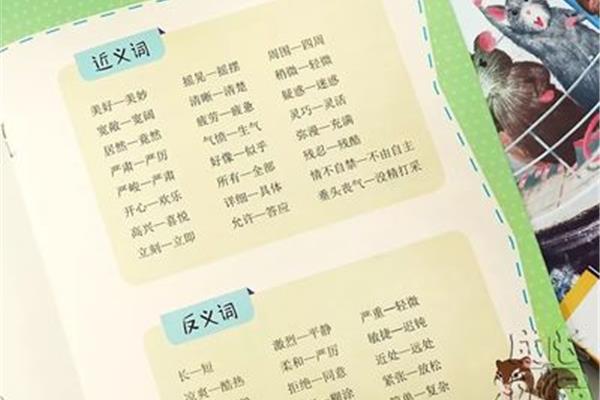 近义词
美好—美妙 摇晃—摇摆 周围—四周
宽敞—宽阔 清晰—清楚 稍微—轻微
居然—竟然 疲劳—疲惫 疑惑—迷惑
严肃—严厉 气愤—生气 灵巧—灵活
严峻—严肃 好像—似乎 弥漫—充满
开心—欢乐 所有—全部 残忍—残酷
高兴—喜悦 详细—具体 情不自禁—不由自主
立刻—立即 允许—答应 垂头丧气—没精打采
反义词
长—短 激烈—平静 严重—轻微
凉爽—酷热 柔和—严厉 敏捷—迟钝
拒绝—同意 近处—远处
糊涂 紧张—放松
简单—复杂